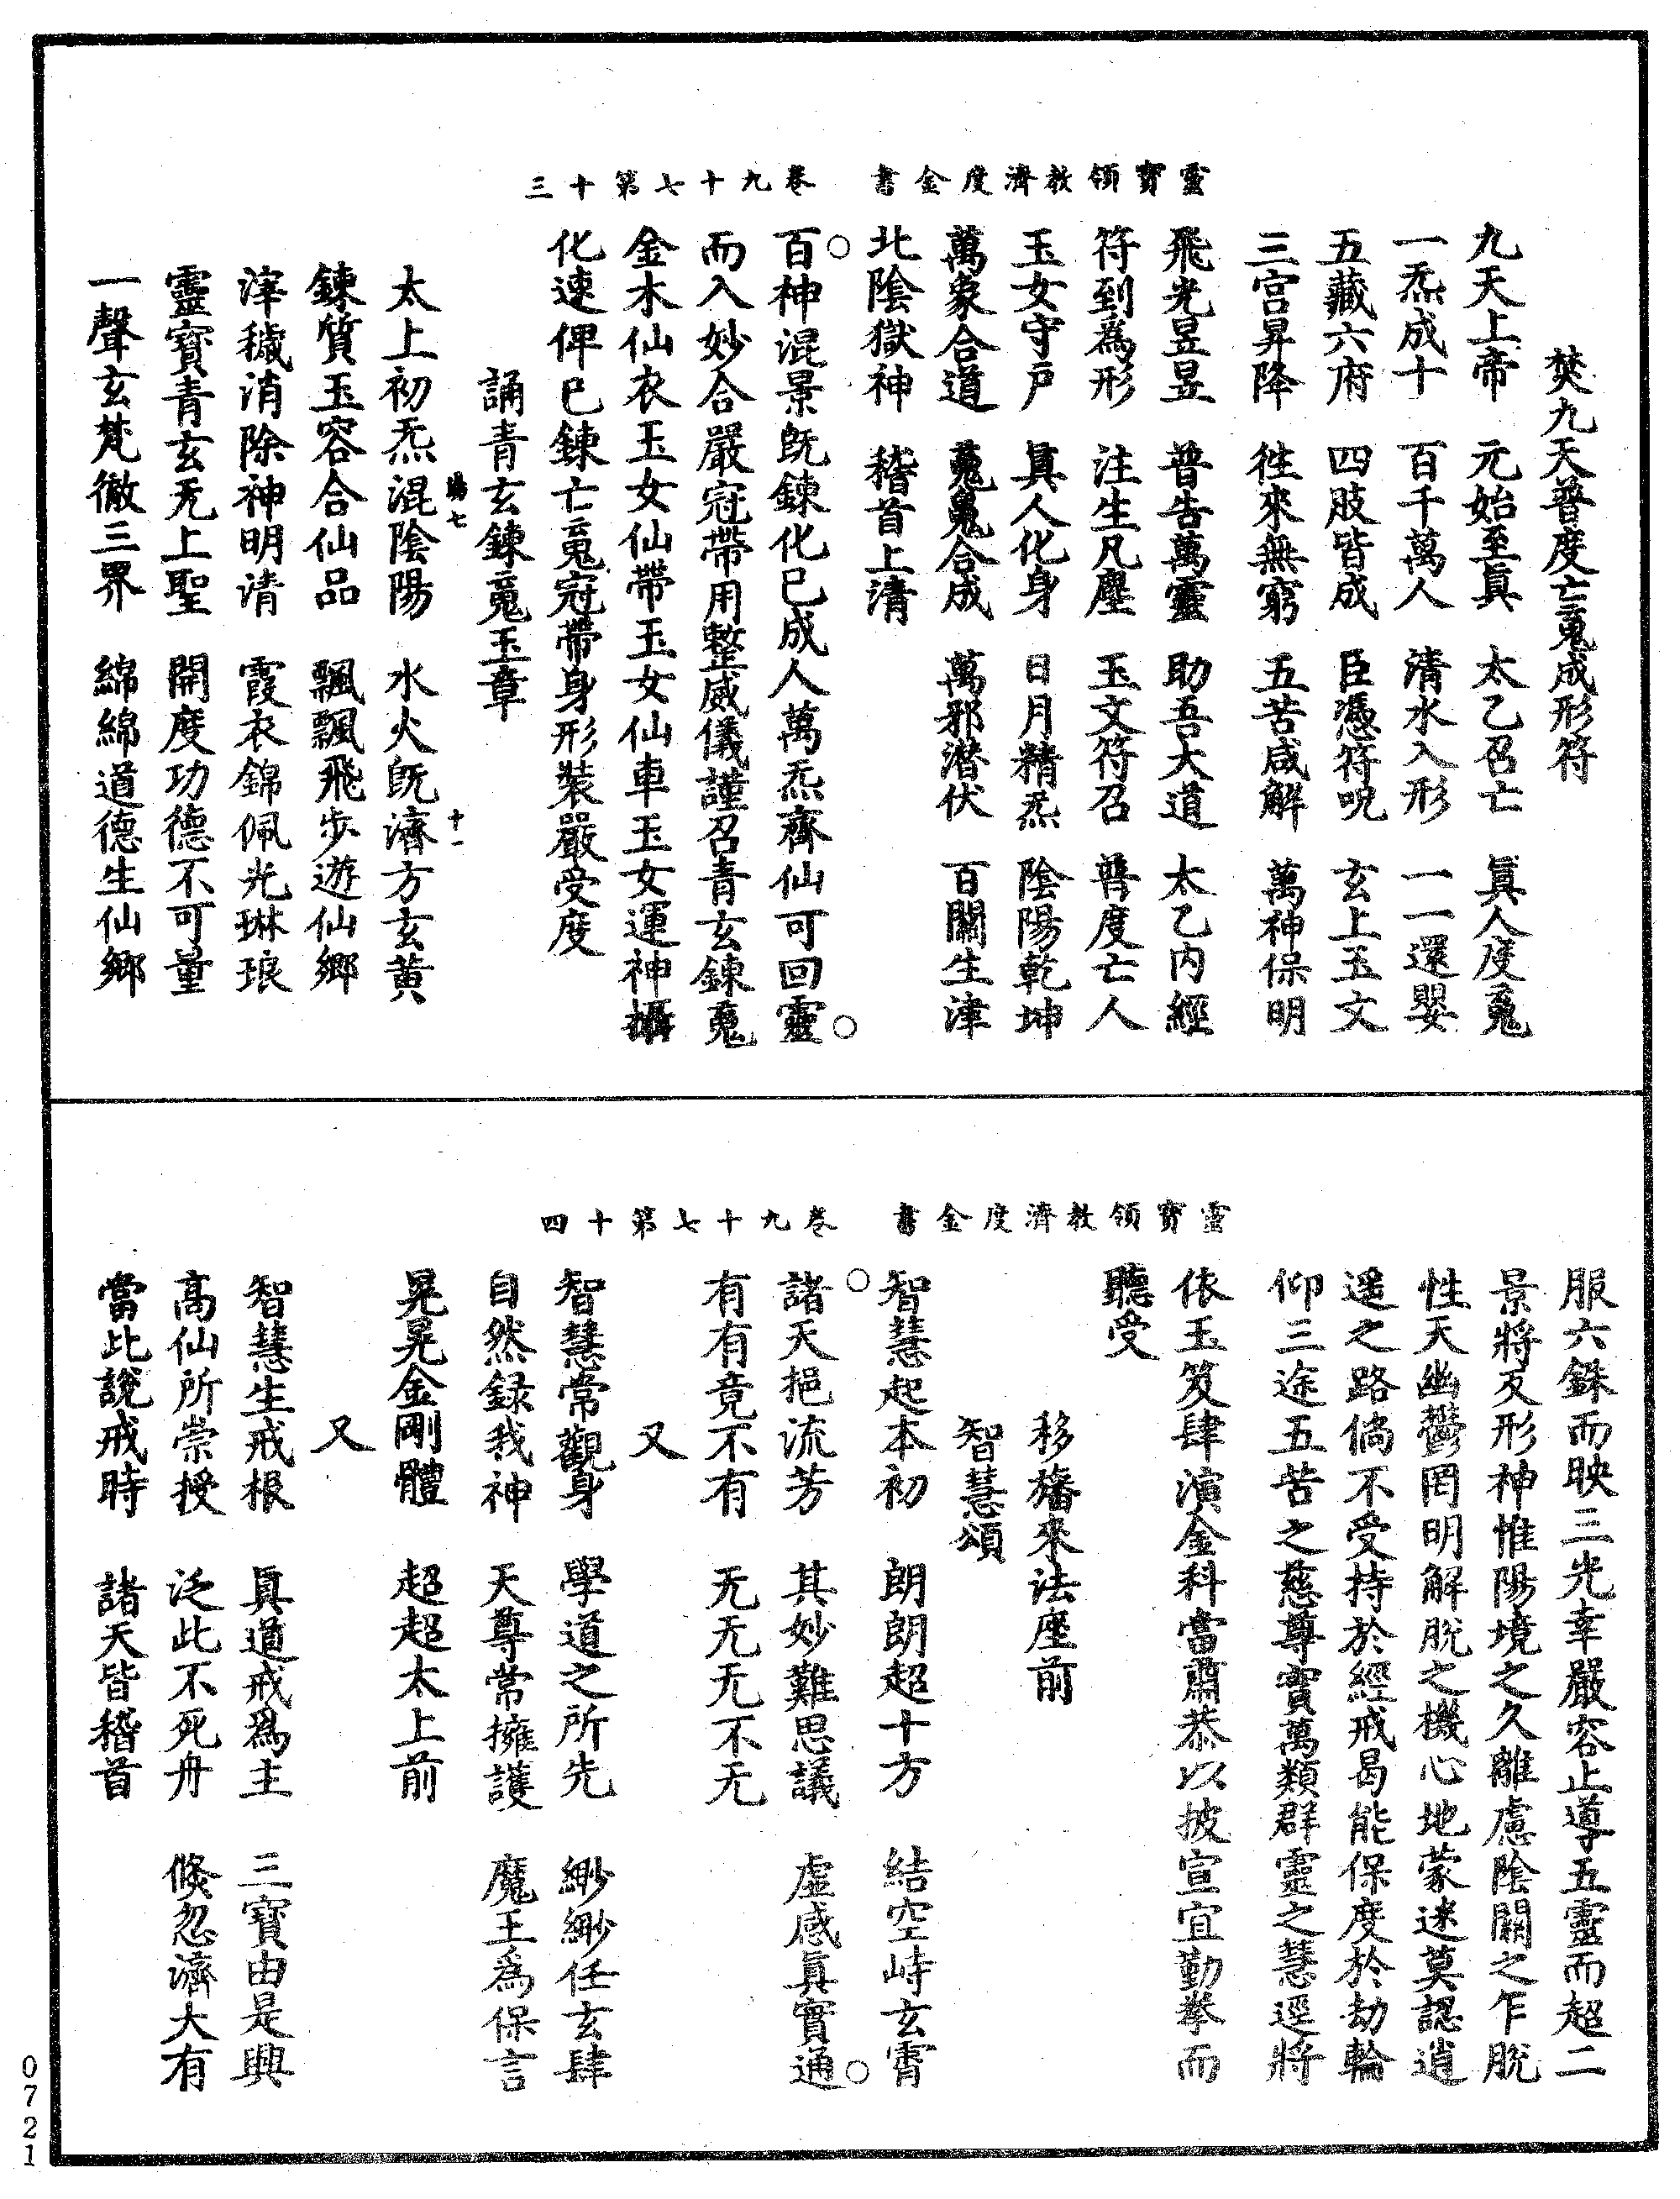 靈寶領教濟度金書　卷九十七第十三
焚九天普度亡䰟成形符
九天上帝　元始至眞　太乙召亡　眞人度䰟
一炁成十　百千萬人　清水入形　一一還嬰
五藏六府　四肢皆成　臣憑符呪　玄上玉文
三宫昇降　徃來無窮　五苦咸解　萬神保明
飛光昱昱　普告萬靈　助吾大道　太乙内經
符到爲形　注生凡塵　玉文符召　普度亡人
玉女守戸　眞人化身　日月精炁　陰陽乾坤
萬象合道　䰟䰟合成　萬邪潜伏　百關生津
北陰獄神　稽首上清
○百神混景旣鍊化已成人萬炁齊仙可回靈○
而入妙合嚴冠帶用整威儀謹召青玄鍊䰟
金木仙衣玉女仙帶玉女仙車玉女運神攝
化速俾已鍊亡䰟冠帶身形裝嚴受度
誦青玄鍊䰟玉章
賜七　十一
太上初炁混陰陽　水火旣濟方玄黄
鍊質玉容合仙品　飄飄飛步遊仙鄉
滓穢消除神明清　霞衣錦佩光琳琅
靈寶青玄无上聖　開度功德不可量
一聲玄梵徹三界　綿綿道德生仙鄉
靈寶領教濟度金書　卷九十七第十四
服六銖而映三光幸嚴容止導五靈而超二
景將及形神惟陽境之久離慮陰關之乍脫
性天幽鬱罔明解脫之機心地蒙迷莫認逍
遥之路倘不受持於經戒曷能保度於劫輪
仰三途五苦之慈尊實萬類群靈之慧逕將
依玉笈肆演金科當肅恭以披宣宜勤拳而
聽受
移旛來法座前
智慧頌
智慧起本初　朗朗超十方　結空峙玄霄
○諸天挹流芳　其妙難思議　虚感眞實通○
有有竟不有　无无无不无
又
智慧常觀身　學道之所先　緲緲任玄肆
自然録我神　天尊常擁護　魔王爲保言
晃晃金剛體　超超太上前
又
智慧生戒根　眞道戒爲主　三寶由是興
高仙所崇授　泛此不死舟　倐忽濟大有
當此說戒時　諸天皆稽首
0721